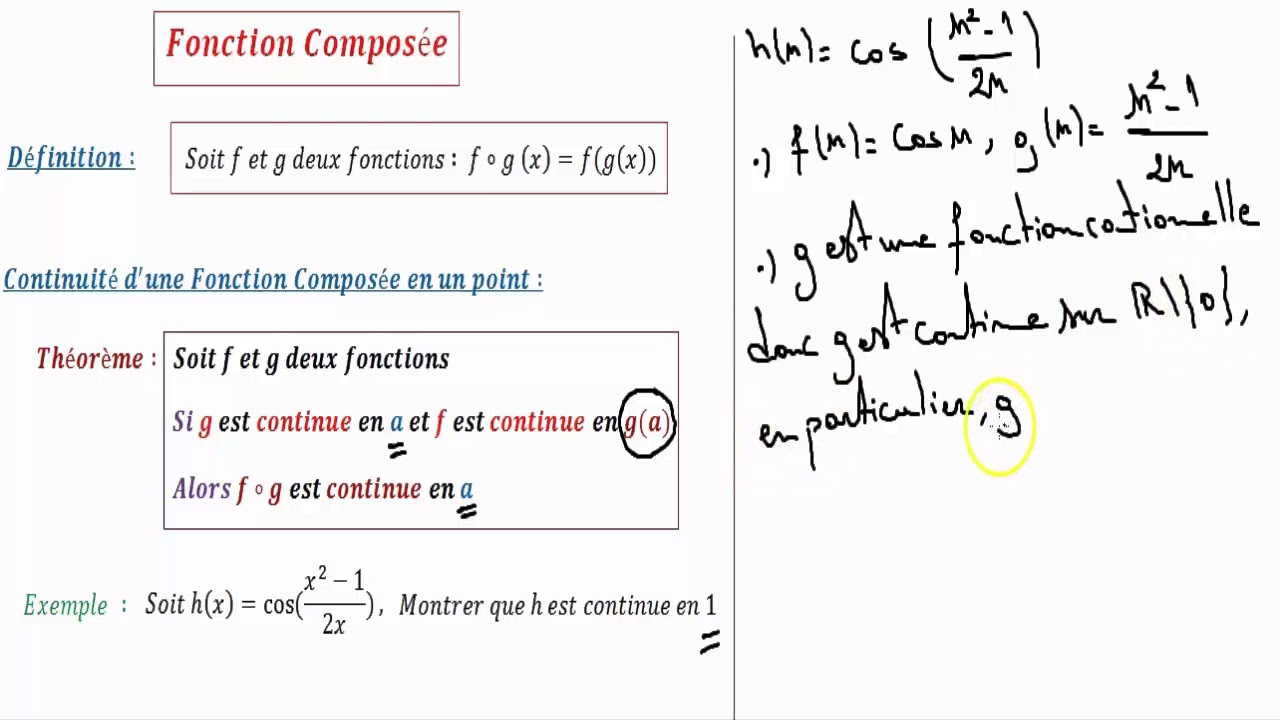 Fonction Composée
Définition : Soit f et g deux fonctions : f ∘ g (x) = f(g(x))
Continuité d'une Fonction Composée en un point :
Théorème : Soit f et g deux fonctions
Si g est continue en a et f est continue en g(a)
Alors f ∘ g est continue en a
Exemple : Soit h(x) = cos(x² − 1 / 2x), Montrer que h est continue en 1
h(x) = cos (x² - 1 / 2x)
.) f(x) = cos x, g(x) = x² - 1 / 2x
.) g est une fonction rationnelle
donc g est continue sur ℝ\{0},
en particulier, g